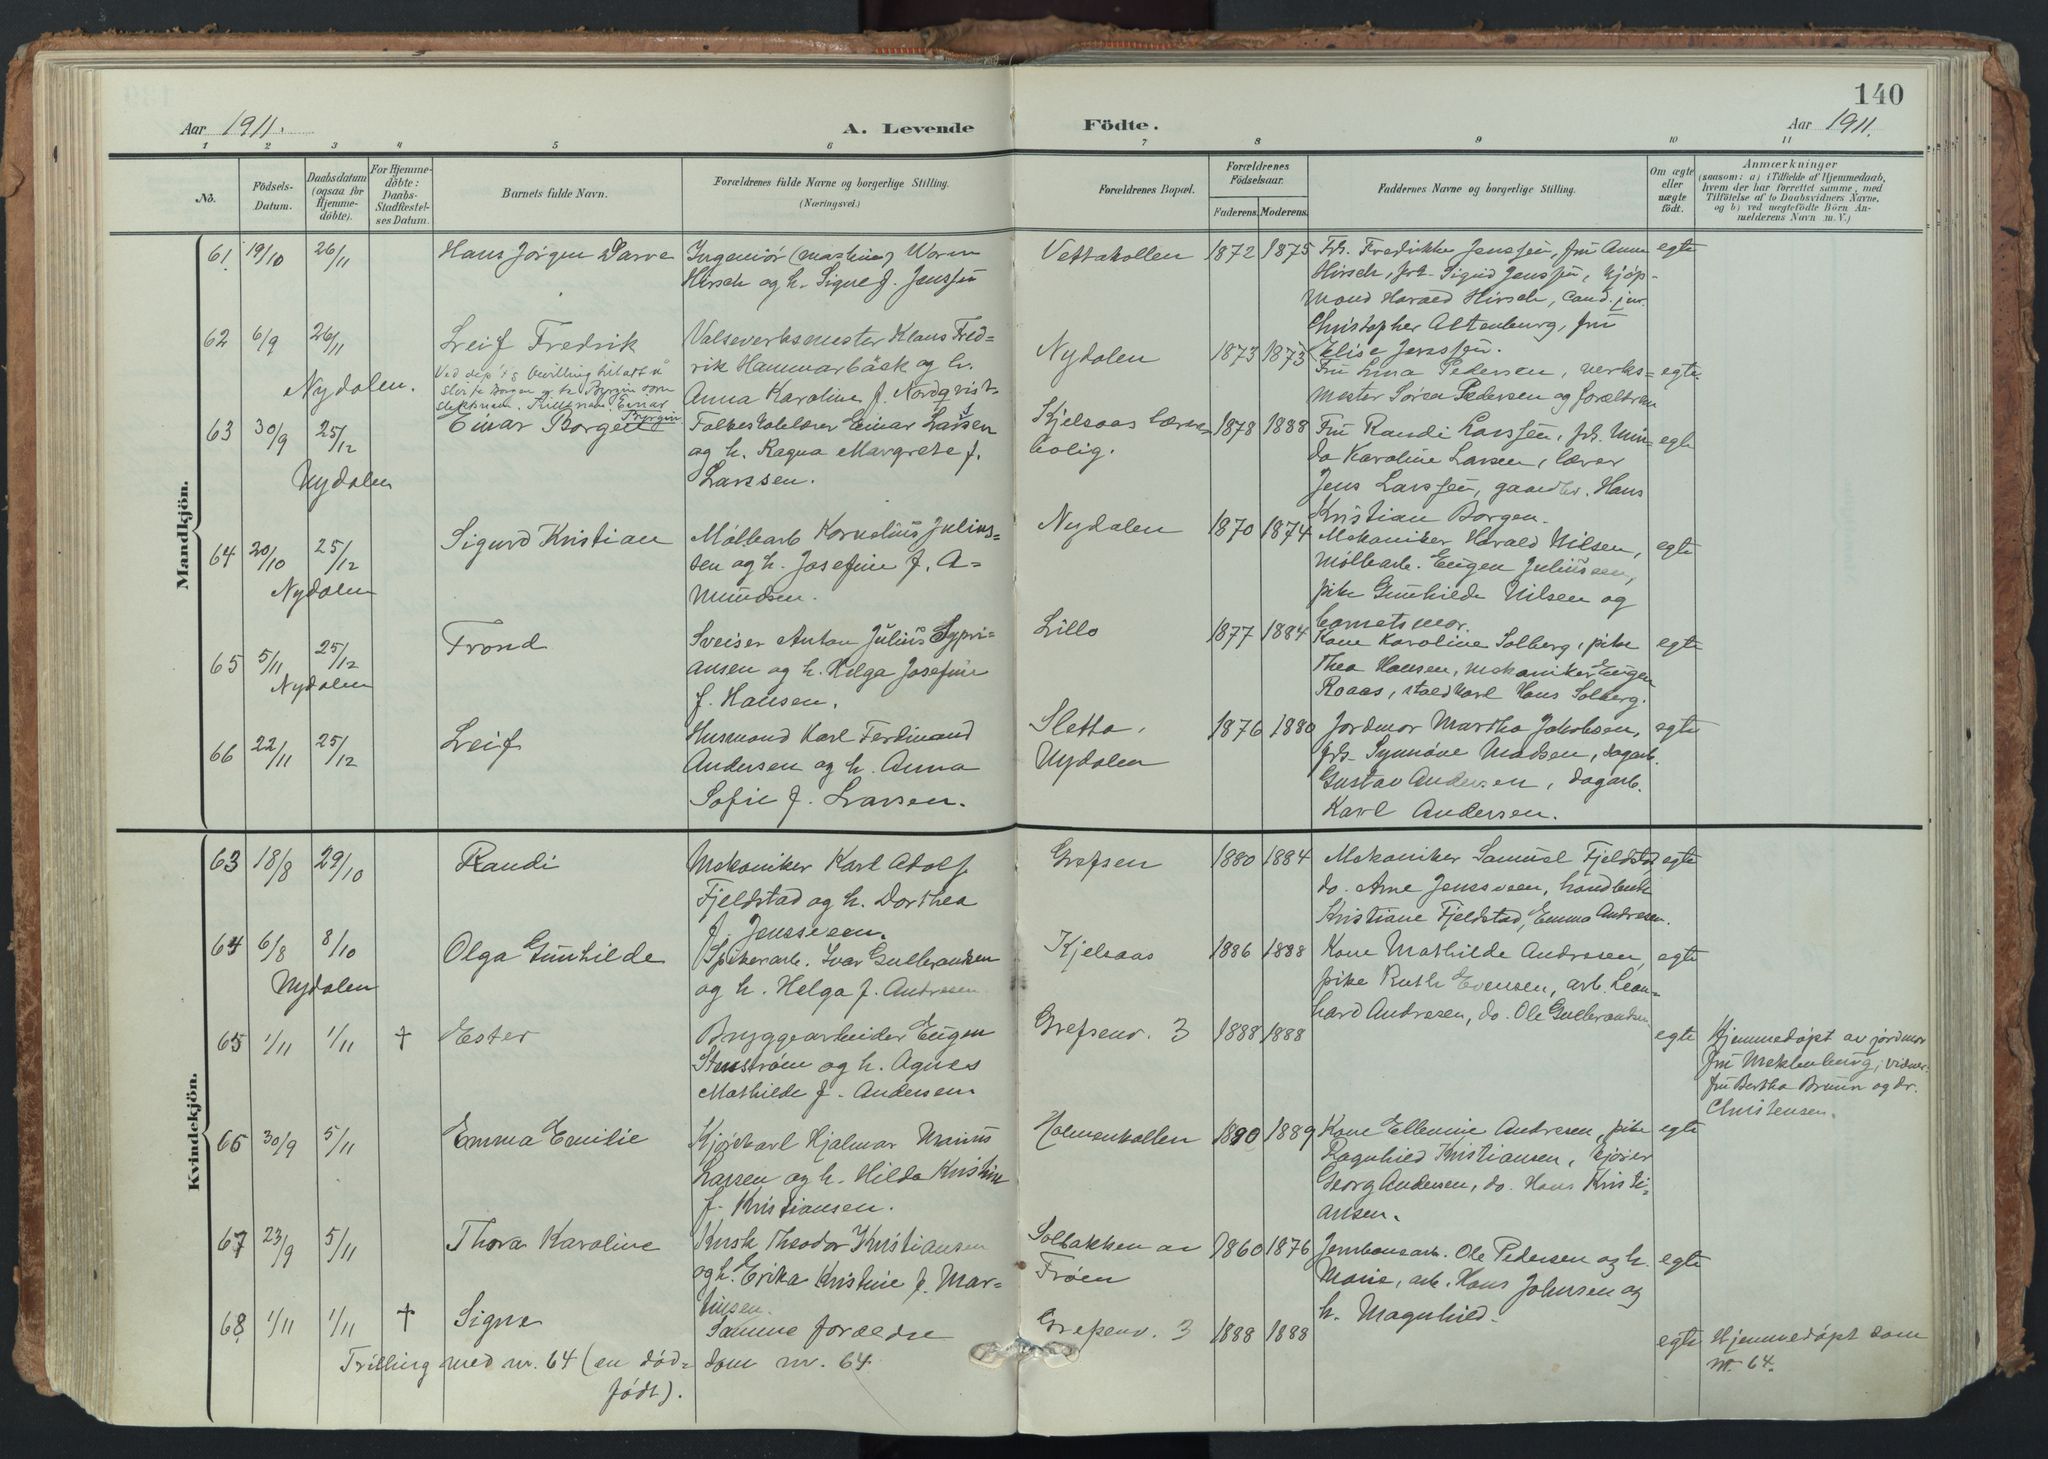 140
Aar 1911.
A. Levende
Födte.
Aar 1911.
1 2 3 4 5 6 7 8 9 10 11
No.
Födsels-
Datum.
Daabsdatum
(ogsaa for
Hjemme-
döbte).
For Hjemme-
döbte:
Daabs-
Stadfæstel-
ses Datum.
Barnets fulde Navn.
Forældrenes fulde Navne og borgerlige Stilling.
(Næringsvei.)
Forældrenes Bopæl.
Forældrenes
Födselsaar.
Faderens. Moderens.
Faddernes Navne og borgerlige Stilling.
Om ægte
eller
uægte
födt.
Anmærkninger
(saasom: a) i Tilfælde af Hjemmedaab,
hvem der har forrettet samme, med
Tilföielse af to Daabsvidners Navne,
og b) ved uægtefödte Börn An-
melderens Navn m. V.)
Mandkjön.
61 19/10 26/11
Hans Jørgen Sarve
Ingeniør (maskin) Worm
Hirsch og h. Signe f. Jenssen
Vettakollen
1872 1875
Frk. Fredrikke Jenssen, fru Anna
Hirsch, frk. Sigrid Jenssen, kjøp-
mand Harald Hirsch, cand. jur.
Christopher Altenburg, fru
Elise Jenssen.
egte
62 6/9 26/11
Nydalen.
Leif Fredrik
Valseverksmester Klaus Fred-
rik Hammarbäck og h.
Anna Karoline f. Nordqvist
Nydalen
1873 1873
Fru Lina Pedersen, verks-
mester Søren Pedersen og forældrene
egte
63 30/9 25/12
Nydalen
Einar Borgen
Folkeskolelærer Einar Larsen
og h. Ragna Margrete f.
Larssen.
Kjelsaas lærer-
bolig.
1878 1888
Fru Randi Larssen, frk. Min-
da Karoline Larsen, lærer
Jens Larssen, gaardbr. Hans
Kristian Borgen.
egte
64 20/10 25/12
Nydalen
Sigurd Kristian
Målbarb Kornelius Julius-
sen og h. Josefine f. A-
mundsen.
Nydalen
1870 1874
Mekaniker Harald Nilsen,
Mølbarb. Eugen Juliussen,
pike Gunhilde Nilsen og
barnets mor.
egte
65 5/11 25/12
Nydalen
Trond
Sveiser Anton Julius Sypri-
ansen og h. Helga Josefine
f. Hansen.
Lillo
1877 1884
Kone Karoline Solberg, pike
Thea Hansen, mekaniker Eugen
Roaas, staldkarl Hans Solberg.
egte
66 22/11 25/12
Leif
Husmand Karl Ferdinand
Andersen og h. Anna
Sofie f. Larsen.
Sletta,
Nydalen
1876 1880
Jordmor Martha Jakobsen,
frk. Synnøve Madsen, dagarb.
Gustav Andersen, dagarb.
Karl Andersen.
egte
Kvindekjön.
63 18/8 29/10
Randi
Mekaniker Karl Adolf
Fjeldstad og h. Dorthea
f. Jensveen.
Grefsen
1880 1884
Mekaniker Samuel Fjeldstad,
do. Arne Jensveen,
Kristiane Fjeldstad, Emma Andresen.
egte
64 6/8 8/10
Nydalen
Olga Gunhilde
Spikerarb. Ivar Gulbrandsen
og h. Helga f. Andresen
Kjelsaas
1886 1888
Kone Mathilde Andresen,
pike Ruth Evensen, arb. Leon-
hard Andresen, do. Ole Gulbrandsen
egte
65 1/11 1/11 †
Ester
Bryggearbeider Eugen
Stenstrøm og h. Agnes
Mathilde f. Andersen
Grefsenv. 3
1888 1888
egte
Hjemmedøpt av jordmor
fru Meklenburg; vidner
fru Bertha Bruun og dr.
Christensen.
66 30/9 5/11
Emma Emilie
Kjørekarl Hjalmar Marius
Larsen og h. Hilda Kristine
f. Kristiansen.
Holmenkollen
1890 1889
Kone Ellenine Andresen, pike
Ragnhild Kristiansen, kjører
Georg Andersen, do. Hans Kristi-
ansen.
egte
67 23/9 5/11
Thora Karoline
Kusk Theodor Kristiansen
og h. Erika Kristine f. Mar-
tinsen.
Solbakken av
Frøen
1860 1876
Jernbanearb. Ole Pedersen og h.
Marie, arb. Hans Johnsen og
h. Magnhild.
egte
68 1/11 1/11 †
Signe
Samme forældre
som nr. 64.
Trilling med nr. 64 (en død-
født).
Grefsenv. 3
1888 1888
egte
Hjemmedøpt som
nr. 64.